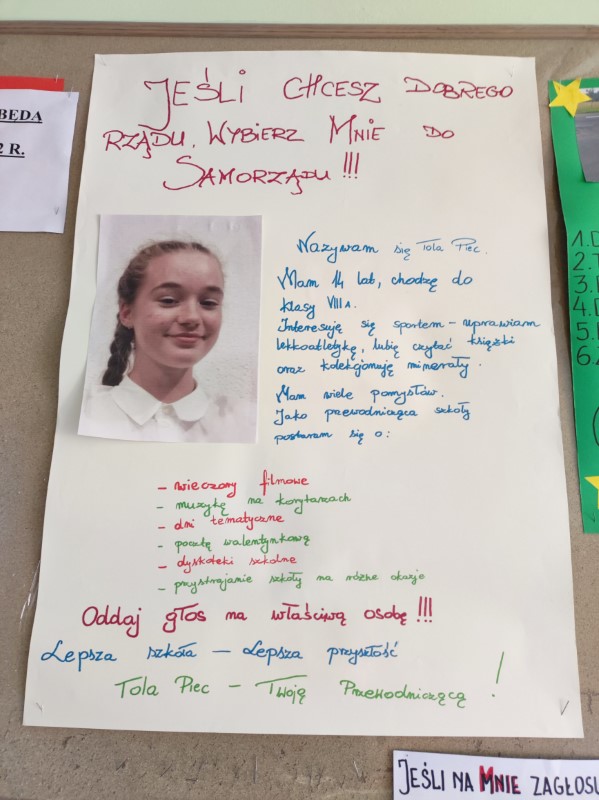 JEŚLI CHCESZ DOBREGO
RZĄDU, WYBIERZ MNIE DO
SAMORZĄDU!!!
Nazywam się Tola Piec.
Mam 14 lat, chodzę do
klasy VIII A.
Interesuję się sportem – uprawiam
lekkoatletykę, lubię czytać książki
oraz kolekcjonuję minerały.
Mam wiele pomysłów.
Jako przewodnicząca szkoły
postaram się o:
– wieczory filmowe
– muzykę na korytarzach
– dni tematyczne
– pocztę walentynkową
– dyskoteki szkolne
– przystrajanie szkoły na różne okazje
Oddaj głos na właściwą osobę!!!
Lepsza szkoła – Lepsza przyszłość
Tola Piec – Twoją Przewodniczącą!
BĘDĄ
2 R.
1.
2.
3.
4.
5.
6.
JEŚLI NA MNIE ZAGŁOSU